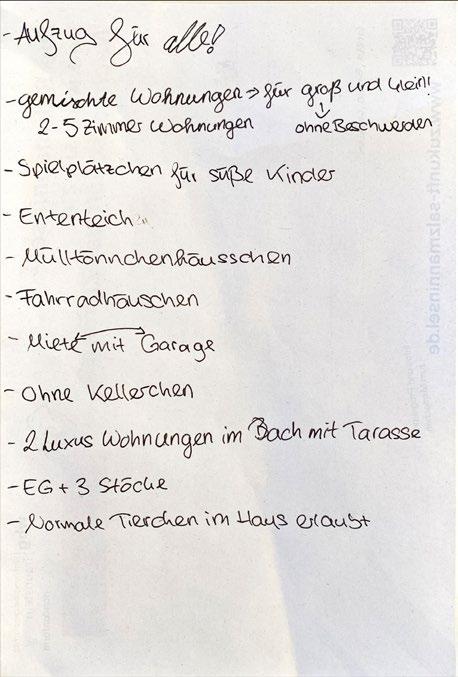 - Aufzug für alle!
- gemischte Wohnungen → für groß und klein!
2-5 Zimmer Wohnungen
↓
ohne Beschwerden
- Spielplätzchen für süße Kinder
- Ententeich
- Mülltönnchenhäusschen
- Fahrradhäuschen
- Miete mit Garage
- Ohne Kellerchen
- 2 Luxus Wohnungen im Dach mit Tarasse
- EG + 3 Stöcke
- Normale Tierchen im Haus erlaubt
www.zukunft-salzmanninsel.de